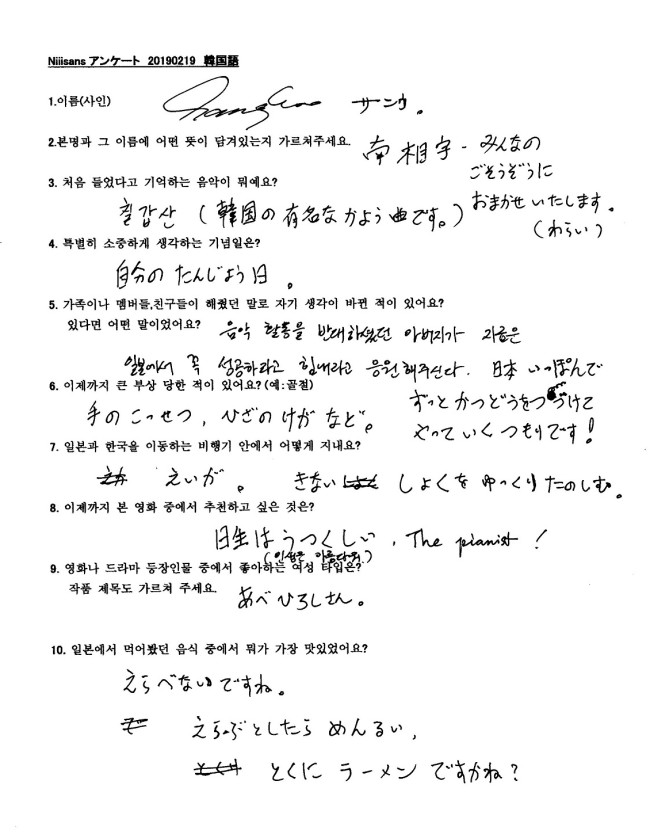 Niiisans アンケート 20190219 韓国語
1.이름(사인) サンウ。
2.본명과 그 이름에 어떤 뜻이 담겨있는지 가르쳐주세요. 南相宇 - みんなの
ごそうぞうに
おまかせいたします。
(わらい)
3. 처음 들었다고 기억하는 음악이 뭐예요?
칠갑산 (韓国の有名なかよう曲です。)
4. 특별히 소중하게 생각하는 기념일은?
自分のたんじょう日。
5. 가족이나 멤버들,친구들이 해줬던 말로 자기 생각이 바뀐 적이 있어요?
있다면 어떤 말이었어요? 음악 활동을 반대하셨던 아버지가 지금은
일본에서 꼭 성공하라고 힘내라고 응원해주신다. 日本いっぽんで
ずっとかつどうをつづけて
やっていくつもりです!
6. 이제까지 큰 부상 당한 적이 있어요?(예:골절)
手のこっせつ, ひざのけがなど。
7. 일본과 한국을 이동하는 비행기 안에서 어떻게 지내요?
えいが。 きないしょくをゆっくりたのしむ。
8. 이제까지 본 영화 중에서 추천하고 싶은 것은?
日生はうつくしい, The pianist !
(인생은 아름다워)
9. 영화나 드라마 등장인물 중에서 좋아하는 여성 타입은?
작품 제목도 가르쳐 주세요. あべひろしさん。
10. 일본에서 먹어봤던 음식 중에서 뭐가 가장 맛있었어요?
えらべないですね。
えらぶとしたら めんるい,
とくに ラーメン ですかね?